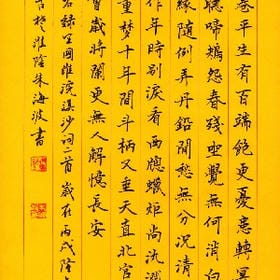 卷平生有百端飽更憂患轉冥
聽啼鴂怨春殘坐覺無何消白
緣隨例弄丹鉛閒愁無分況清
作年時別淚看西窗蠟炬尚汍
重夢十年間斗柄又垂天直北官
會歲將闌更無人解憶長安
右錄王國維浣溪沙詞二首歲在丙戌隆
古楚淮陰朱海波書